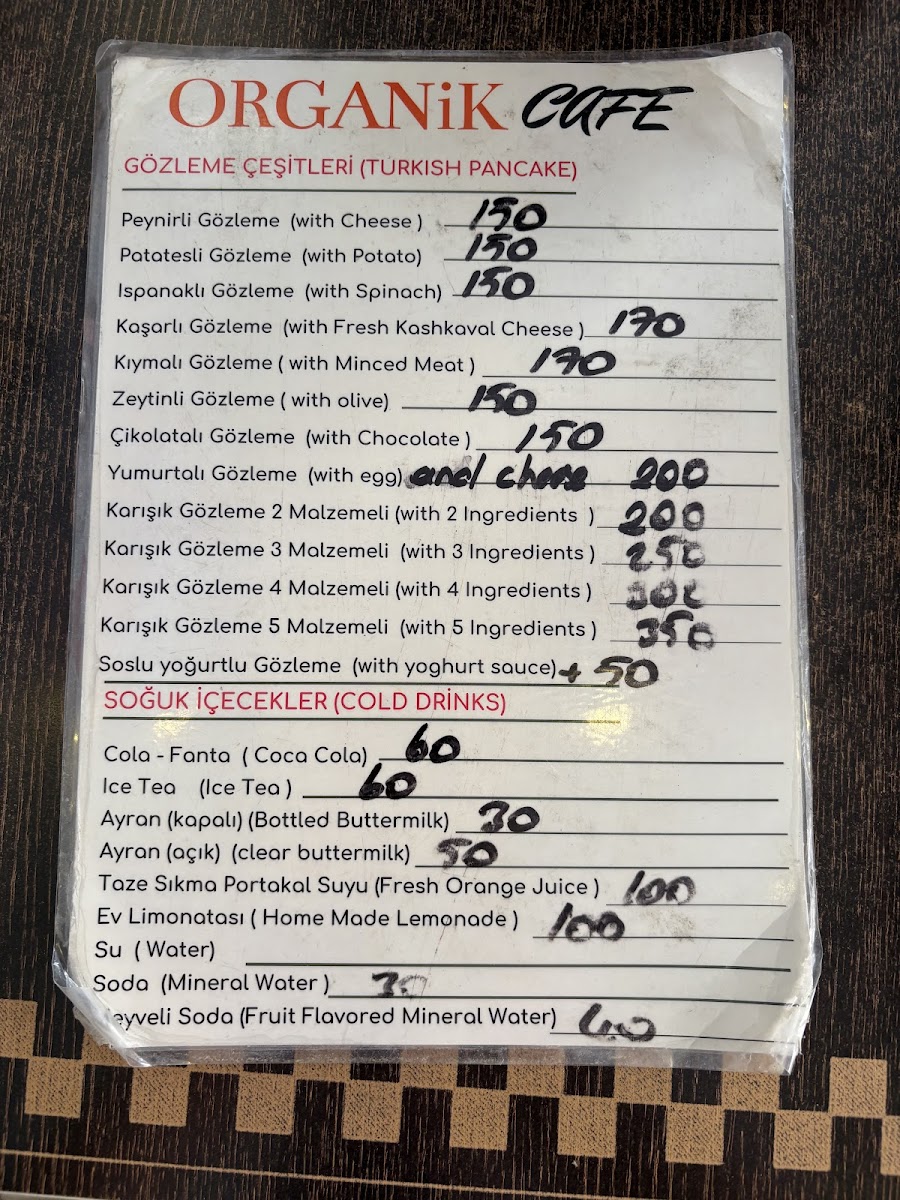 ORGANiK CAFE
GÖZLEME ÇEŞİTLERİ (TURKISH PANCAKE)
Peynirli Gözleme (with Cheese ) 150
Patatesli Gözleme (with Potato) 150
Ispanaklı Gözleme (with Spinach) 150
Kaşarlı Gözleme (with Fresh Kashkaval Cheese ) 170
Kıymalı Gözleme ( with Minced Meat ) 170
Zeytinli Gözleme ( with olive) 150
Çikolatalı Gözleme (with Chocolate ) 150
Yumurtalı Gözleme (with egg) and cheese 200
Karışık Gözleme 2 Malzemeli (with 2 Ingredients ) 200
Karışık Gözleme 3 Malzemeli (with 3 Ingredients ) 250
Karışık Gözleme 4 Malzemeli (with 4 Ingredients ) 300
Karışık Gözleme 5 Malzemeli (with 5 Ingredients ) 350
Soslu yoğurtlu Gözleme (with yoghurt sauce) + 50
SOĞUK İÇECEKLER (COLD DRİNKS)
Cola - Fanta ( Coca Cola) 60
Ice Tea (Ice Tea ) 60
Ayran (kapalı) (Bottled Buttermilk) 30
Ayran (açık) (clear buttermilk) 50
Taze Sıkma Portakal Suyu (Fresh Orange Juice ) 100
Ev Limonatası ( Home Made Lemonade ) 100
Su ( Water)
Soda (Mineral Water ) 30
eyveli Soda (Fruit Flavored Mineral Water) 40